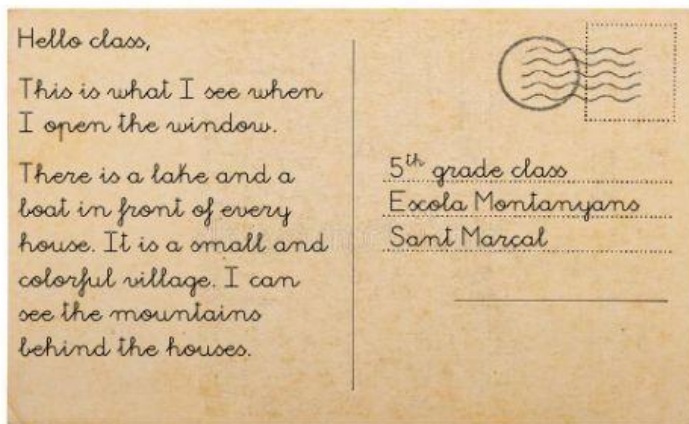 Hello class,
This is what I see when
I open the window.
There is a lake and a
boat in front of every
house. It is a small and
colorful village. I can
see the mountains
behind the houses.
5th grade class
Escola Montanyans
Sant Marçal